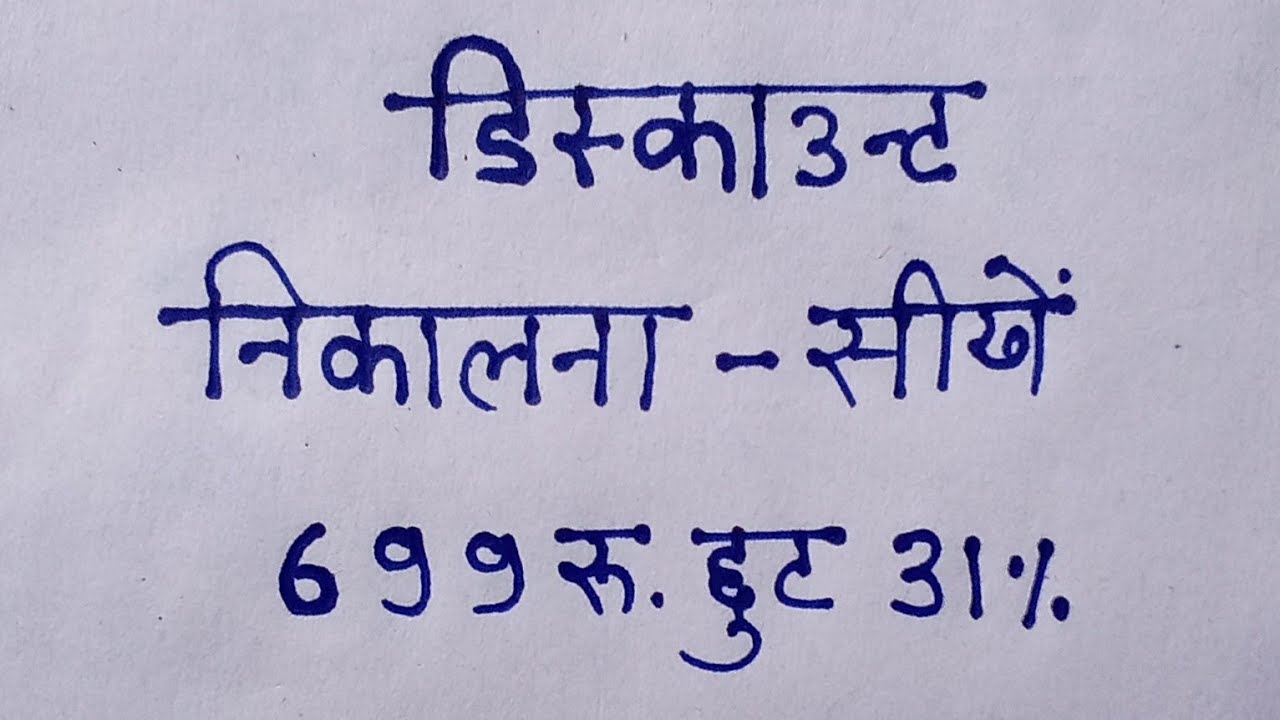 डिस्काउन्ट
निकालना - सीखें
699 रु. छुट 31%